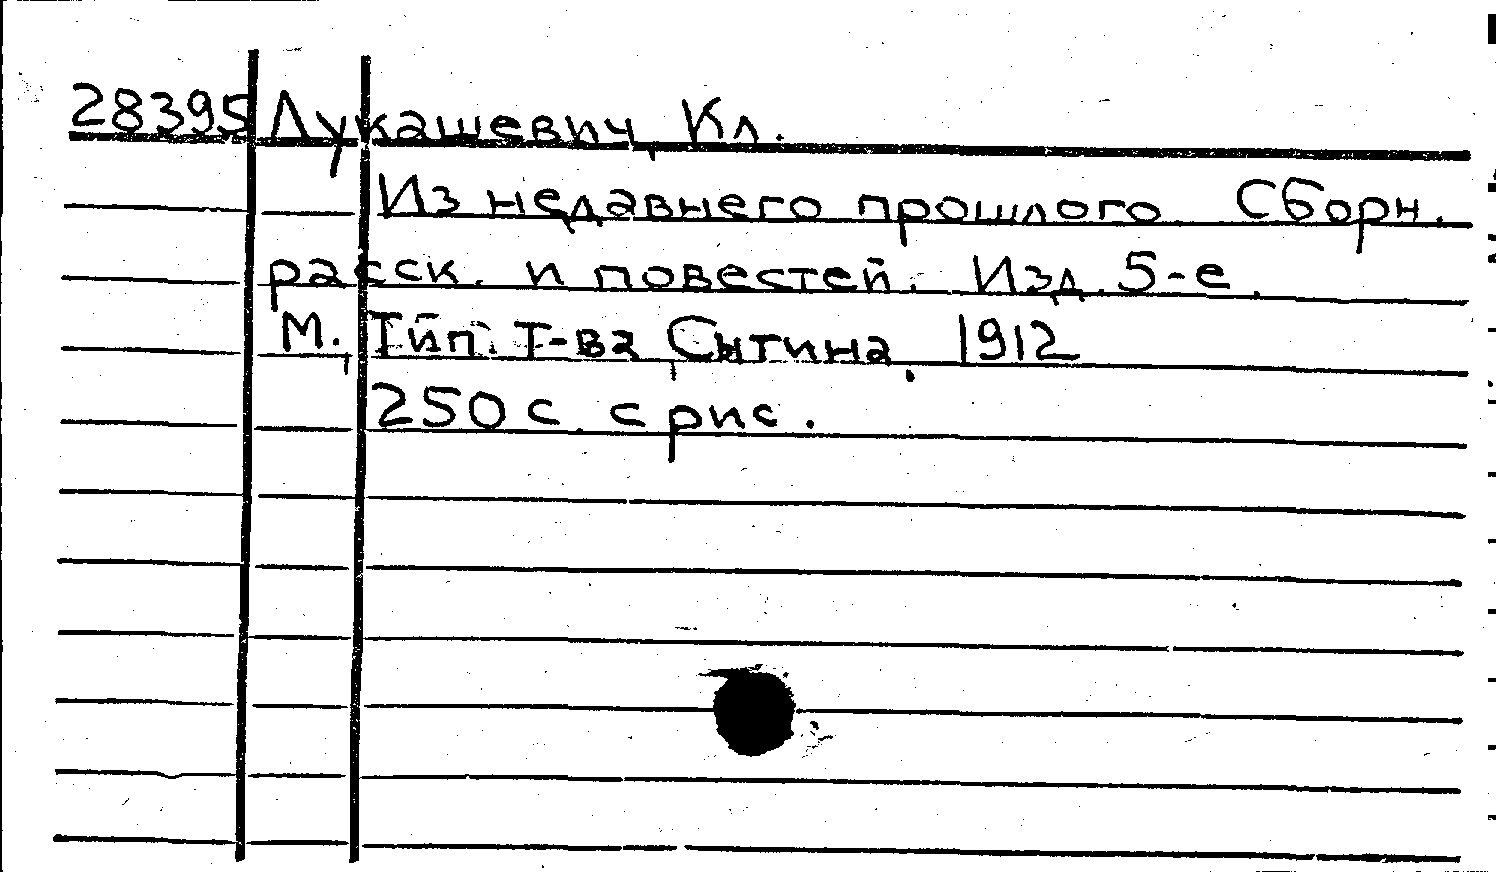 28395 Лукашевич, Кл.
Из недавнего прошлого. Сборн.
расск. и повестей. Изд. 5-е.
М., Тип. Т-ва Сытина, 1912
250 с. с рис.